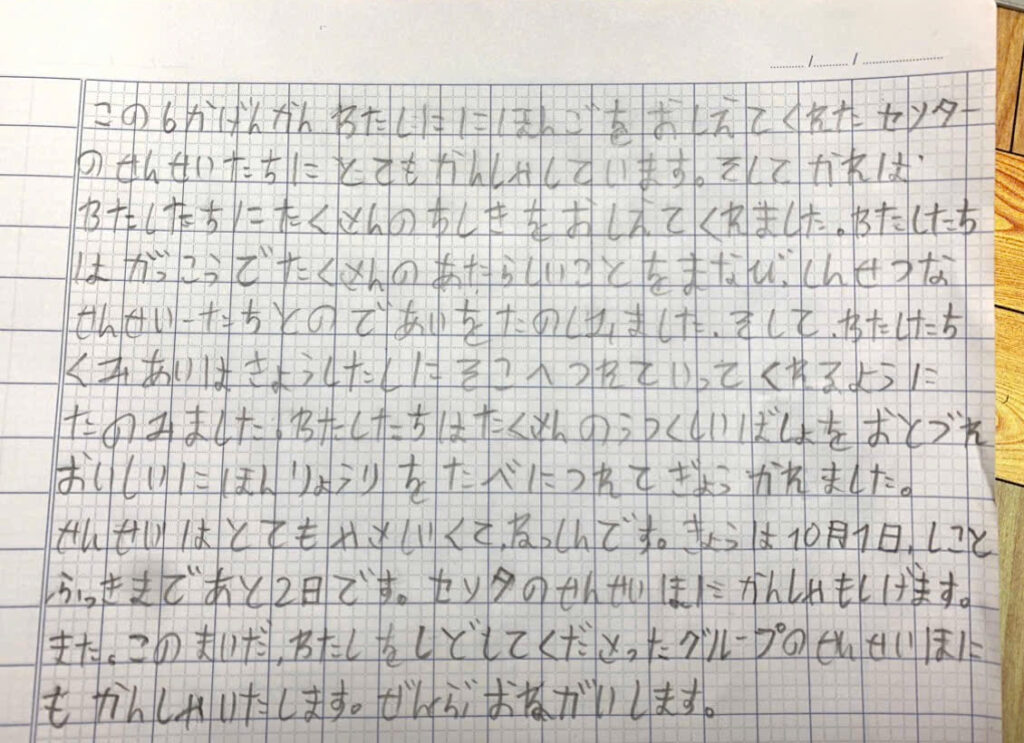 この6かげんかん わたしににほんごを おしえてくれた センター
の せんせいたちに とても かんしゃしています。そしてかれは
わたしたちにたくさんのちしきをおしえてくれました。わたしたち
は がっこうでたくさんのあたらしいことをまなび、しんせつな
せんせいーたちとのであいをたのしみました。そして、わたしたち
くみあいはきようしたしにそこへつれていってくれるように
たのみました。わたしたちはたくさんのうつくしいばしょを おとづれ
おいしいにほんりょうり をたべにつれて ぎょう かれました。
せんせいはとてもやさしいくて、ねっしんです。きょうは10月1日、しごと
ふっきまであと2日です。センタのせんせいほに かんしゃもしげます。
また。このまいだ、わたしをしどしてくださったグループのせんせいほに
も かんしゃいたします。 おねがいします。